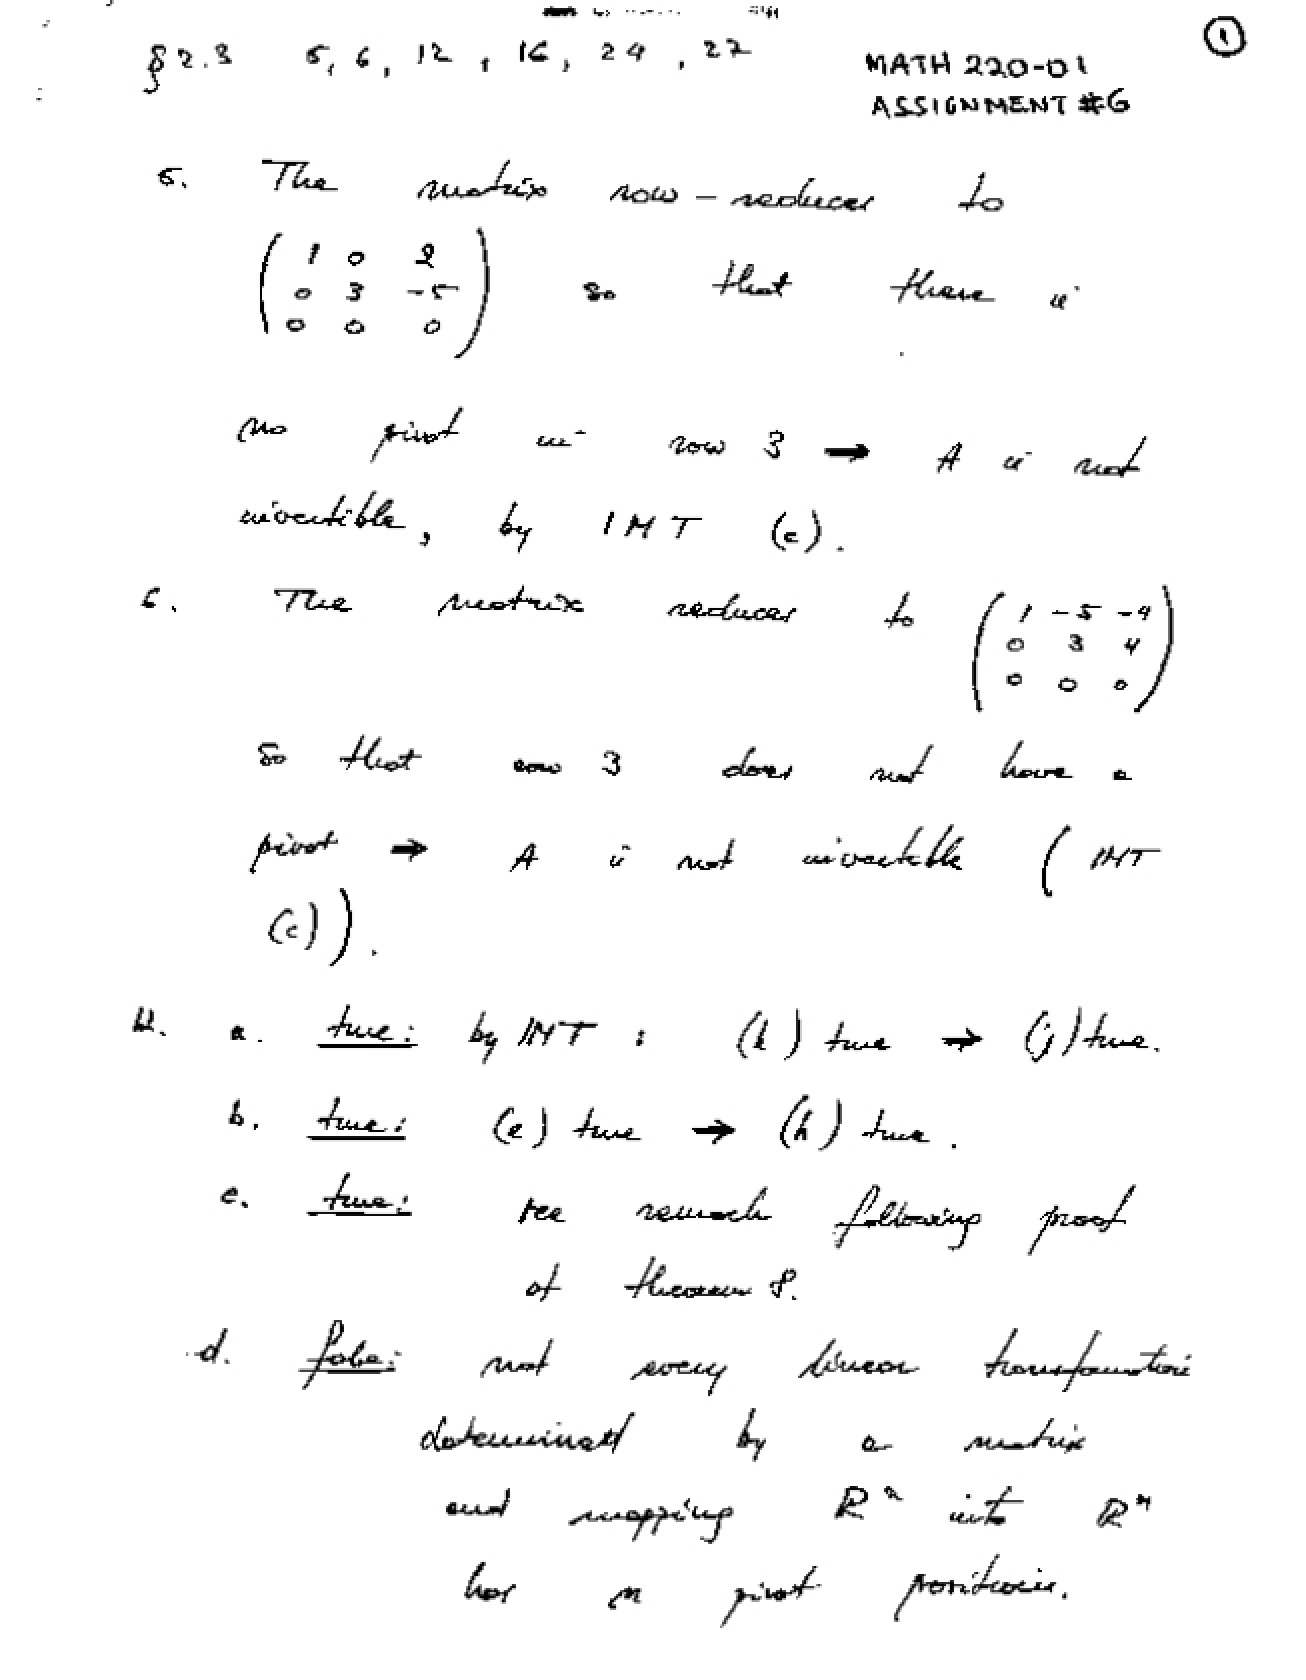 § 2.3 5, 6, 12, 16, 24, 27
MATH 220-01
ASSIGNMENT #6
1
5. The matrix row-reduces to
( 1 0 2
0 3 -5
0 0 0 ) so that there is
no pivot in row 3 → A is not
invertible, by IMT (c).
6. The matrix reduces to ( 1 -5 -4
0 3 4
0 0 0 )
so that row 3 does not have a
pivot → A is not invertible ( IMT
(c)).
12. a. true: by IMT : (k) true → (j) true.
b. true: (e) true → (h) true.
c. true: see remark following proof
of theorem 8.
d. false: not every linear transformation
determined by a matrix
and mapping ℝⁿ into ℝⁿ
has n pivot positions.